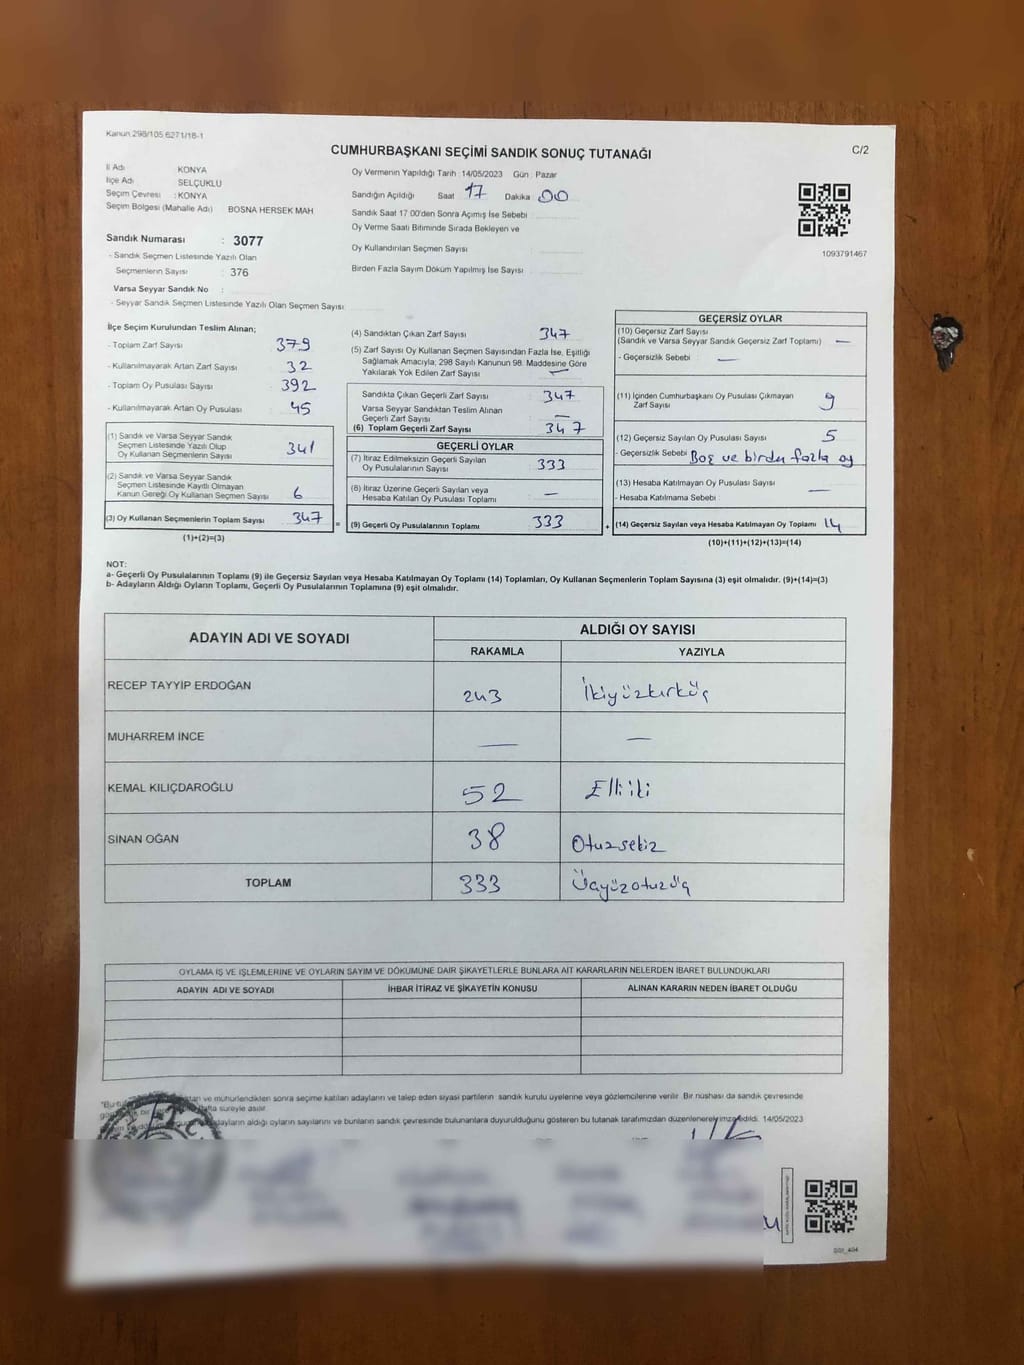 Kanun 298/105 6271/18-1
CUMHURBAŞKANI SEÇİMİ SANDIK SONUÇ TUTANAĞI
C/2
İl Adı : KONYA
İlçe Adı : SELÇUKLU
Seçim Çevresi : KONYA
Seçim Bölgesi (Mahalle Adı) BOSNA HERSEK MAH
Sandık Numarası : 3077
- Sandık Seçmen Listesinde Yazılı Olan
Seçmenlerin Sayısı : 376
Varsa Seyyar Sandık No :
- Seyyar Sandık Seçmen Listesinde Yazılı Olan Seçmen Sayısı:
Oy Vermenin Yapıldığı Tarih : 14/05/2023 Gün : Pazar
Sandığın Açıldığı Saat 17 Dakika 00
Sandık Saat 17.00'den Sonra Açımış İse Sebebi
Oy Verme Saati Bitiminde Sırada Bekleyen ve
Oy Kullandırılan Seçmen Sayısı
Birden Fazla Sayım Döküm Yapılmış İse Sayısı
1093791467
İlçe Seçim Kurulundan Teslim Alınan;
- Toplam Zarf Sayısı 379
- Kullanılmayarak Artan Zarf Sayısı 32
- Toplam Oy Pusulası Sayısı 392
- Kullanılmayarak Artan Oy Pusulası 45
(1) Sandık ve Varsa Seyyar Sandık
Seçmen Listesinde Yazılı Olup
Oy Kullanan Seçmenlerin Sayısı 341
(2) Sandık ve Varsa Seyyar Sandık
Seçmen Listesinde Kayıtlı Olmayan
Kanun Gereği Oy Kullanan Seçmen Sayısı 6
(3) Oy Kullanan Seçmenlerin Toplam Sayısı 347 =
(1)+(2)=(3)
(4) Sandıktan Çıkan Zarf Sayısı 347
(5) Zarf Sayısı Oy Kullanan Seçmen Sayısından Fazla İse, Eşitliği
Sağlamak Amacıyla; 298 Sayılı Kanunun 98. Maddesine Göre
Yakılarak Yok Edilen Zarf Sayısı —
Sandıkta Çıkan Geçerli Zarf Sayısı 347
Varsa Seyyar Sandıktan Teslim Alınan
Geçerli Zarf Sayısı —
(6) Toplam Geçerli Zarf Sayısı 347
GEÇERLİ OYLAR
(7) İtiraz Edilmeksizin Geçerli Sayılan
Oy Pusulalarının Sayısı 333
(8) İtiraz Üzerine Geçerli Sayılan veya
Hesaba Katılan Oy Pusulası Toplamı —
(9) Geçerli Oy Pusulalarının Toplamı 333 +
GEÇERSİZ OYLAR
(10) Geçersiz Zarf Sayısı
(Sandık ve Varsa Seyyar Sandık Geçersiz Zarf Toplamı) —
- Geçersizlik Sebebi : —
(11) İçinden Cumhurbaşkanı Oy Pusulası Çıkmayan
Zarf Sayısı 9
(12) Geçersiz Sayılan Oy Pusulası Sayısı 5
- Geçersizlik Sebebi : Boş ve birden fazla oy
(13) Hesaba Katılmayan Oy Pusulası Sayısı
- Hesaba Katılmama Sebebi : —
(14) Geçersiz Sayılan veya Hesaba Katılmayan Oy Toplamı 14
(10)+(11)+(12)+(13)=(14)
NOT:
a- Geçerli Oy Pusulalarının Toplamı (9) ile Geçersiz Sayılan veya Hesaba Katılmayan Oy Toplamı (14) Toplamları, Oy Kullanan Seçmenlerin Toplam Sayısına (3) eşit olmalıdır. (9)+(14)=(3)
b- Adayların Aldığı Oyların Toplamı, Geçerli Oy Pusulalarının Toplamına (9) eşit olmalıdır.
ADAYIN ADI VE SOYADI
ALDIĞI OY SAYISI
RAKAMLA YAZIYLA
RECEP TAYYİP ERDOĞAN 243 İkiyüzkırküç
MUHARREM İNCE — —
KEMAL KILIÇDAROĞLU 52 Elliiki
SİNAN OĞAN 38 Otuzsekiz
TOPLAM 333 Üçyüzotuzüç
OYLAMA İŞ VE İŞLEMLERİNE VE OYLARIN SAYIM VE DÖKÜMÜNE DAİR ŞİKAYETLERLE BUNLARA AİT KARARLARIN NELERDEN İBARET BULUNDUKLARI
ADAYIN ADI VE SOYADI İHBAR İTİRAZ VE ŞİKAYETİN KONUSU ALINAN KARARIN NEDEN İBARET OLDUĞU
ve mühürlendikten sonra seçime katılan adayların ve talep eden siyasi partilerin sandık kurulu üyelerine veya gözlemcilerine verilir. Bir nüshası da sandık çevresinde
hafta süreyle asılır.
adayların aldığı oyların sayılarını ve bunların sandık çevresinde bulunanlara duyurulduğunu gösteren bu tutanak tarafımızdan düzenlenerek imza edildi. 14/05/2023